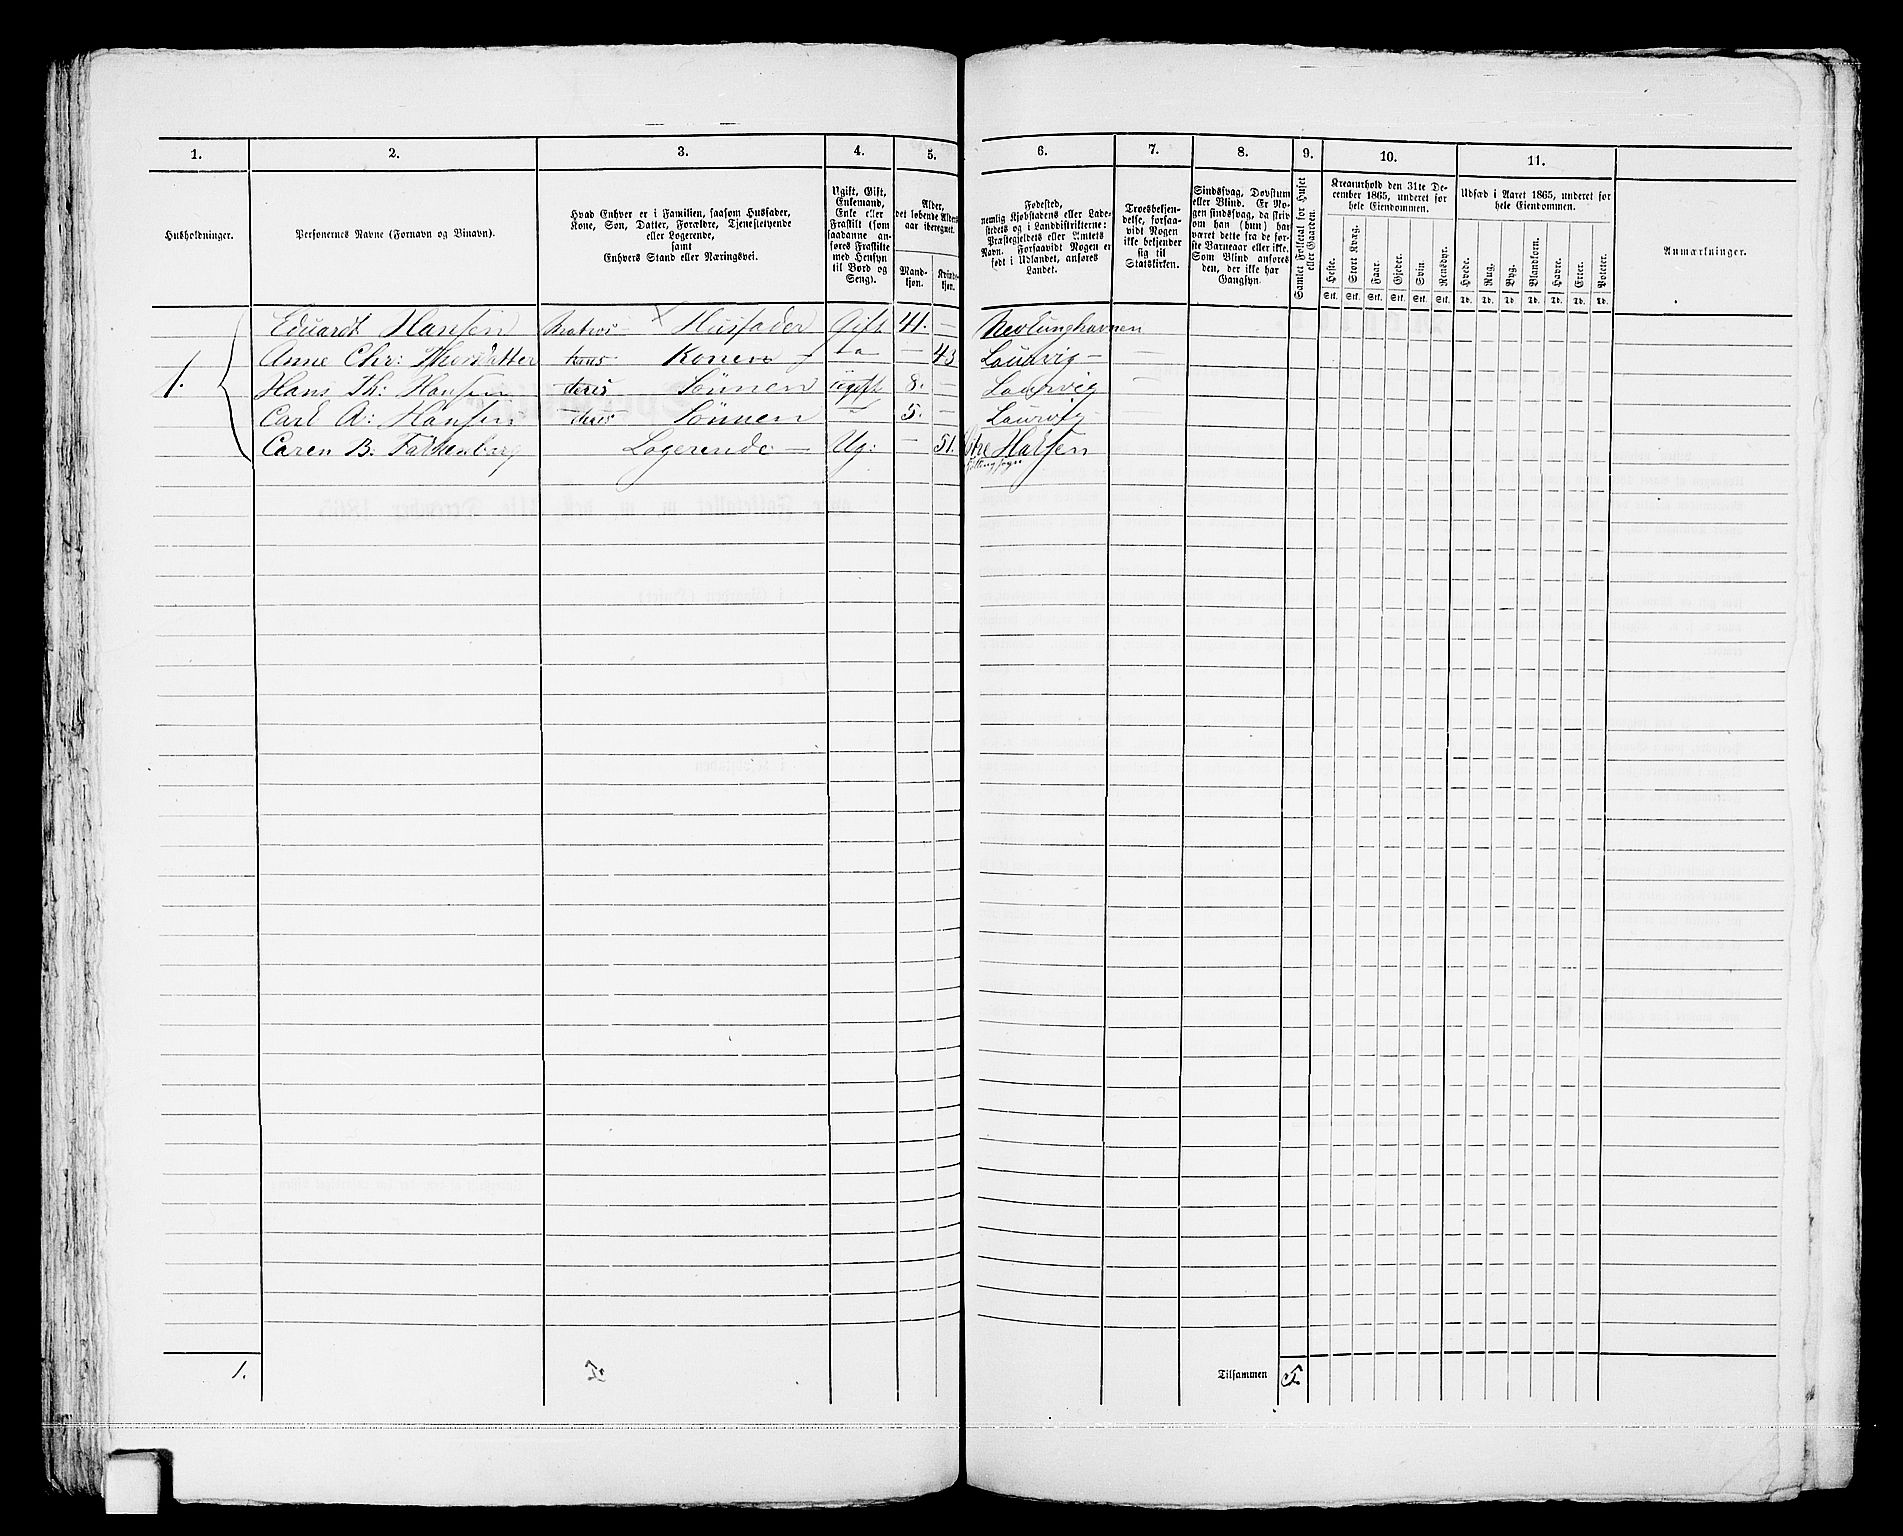 1. 2. 3. 4. 5. 6. 7. 8. 9. 10. 11.
Husholdninger.
Personernes Navne (Fornavn og Binavn).
Hvad Enhver er i Familien, saasom Husfader,
Kone, Søn, Datter, Forældre, Tjenestetyende
eller Logerende,
samt
Enhvers Stand eller Næringsvei.
Ugift, Gift,
Enkemand,
Enke eller
Fraskilt (som
saadanne an-
føres Fraskilte
med Hensyn
til Bord og
Seng).
Alder,
det løbende Alders-
aar iberegnet.
Mand-
kjøn.
Kvinde-
kjøn.
Fødested,
nemlig Kjøbstadens eller Lade-
stedets og i Landdistrikterne:
Præstegjeldets eller Amtets
Navn. Forsaavidt Nogen er
født i Udlandet, anføres
Landet.
Troesbekjen-
delse, forsaa-
vidt Nogen
ikke bekjender
sig til
Statskirken.
Sindssvag, Døvstum
eller Blind. Er No-
gen sindssvag, da skriv
om han (hun) har
været dette fra de før-
ste Barneaar eller ikke.
Som Blind anføres
den, der ikke har
Gangsyn.
Samlet Folketal for Huset
eller Gaarden.
Kreaturhold den 31te De-
cember 1865, underet for
hele Eiendommen.
Heste. Stort Kvæg. Faar. Gjeder. Svin. Rensdyr.
Stk. Stk. Stk. Stk. Stk. Stk.
Udsæd i Aaret 1865, underet for
hele Eiendommen.
Hvede. Rug. Byg. Blandkorn. Havre. Erter. Poteter.
Td. Td. Td. Td. Td. Td. Td.
Anmærkninger.
Eduardt Hansen Husfader Gift 41. — Nevlunghavnen
1. Anne Chr: Thorsdatter hans Kone do — 43 Laurvig —
Hans Th: Hansen deres Sønnen ugift 8. — Laurvig
Carl A: Hansen deres Sønnen — 5. — Laurvig
Caren B. Falkenberg Logerende — Ug: — 51. Halsen
1. Tilsammen 5